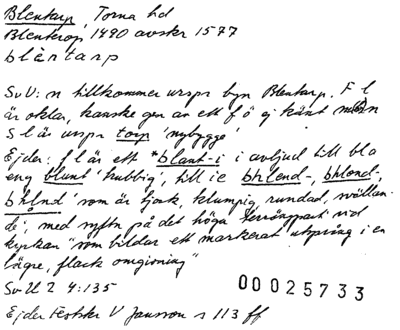 Blentarp, Torna hd
Blenterop 1490 avskr 1577
blèntarp
SvU: n tillkommer urspr byn Blentarp. F l
är oklar, kanske gen av ett f ö ej känt mn
S l är urspr torp 'nybygge'
Ejder: f l är ett *blant-i i avljud till bla
eng blunt 'kubbig', till ie bhlend-, bhlond-,
bhlnd 'som är tjock, klumpig, rundad, svällan-
de', med syftn på det höga terrängpart vid
kyrkan "som bildar ett markerat utsprång i en
lägre, flack omgivning"
SvU 2 4:135
00025733
Ejder Festskr V Jansson s 113 ff